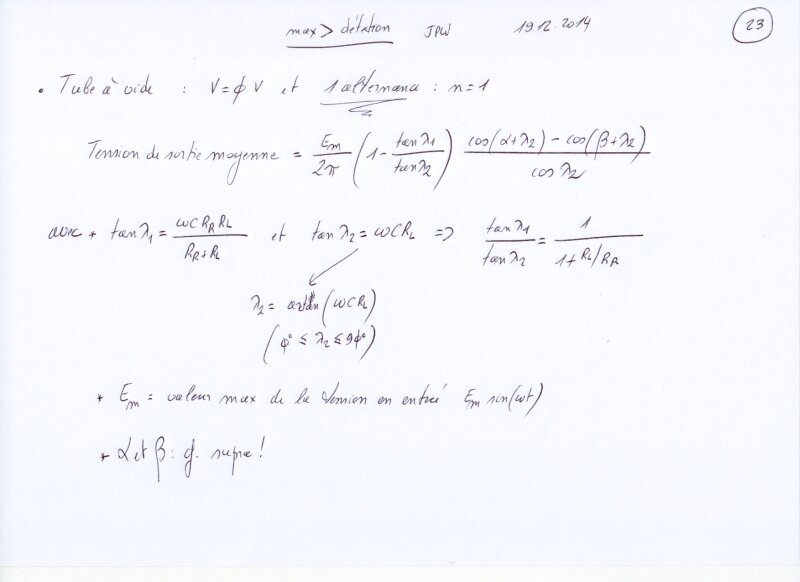 max > détation JPW 19.12.2014 23
• Tube à vide : V=ϕ V et 1 alternance : n=1
Tension de sortie moyenne = Em/2π (1 - tan λ1/tan λ2) (cos(α+λ2) - cos(β+λ2))/cos λ2
avec * tan λ1 = ωC RR RL/(RR+RL) et tan λ2 = ωCRL => tan λ1/tan λ2 = 1/(1+RL/RR)
λ2 = (ωCRL)
(ϕ° ≤ λ2 ≤ 9ϕ°)
* Em = valeur max de la tension en entrée Em sin(ωt)
* α et β : cf. supra !